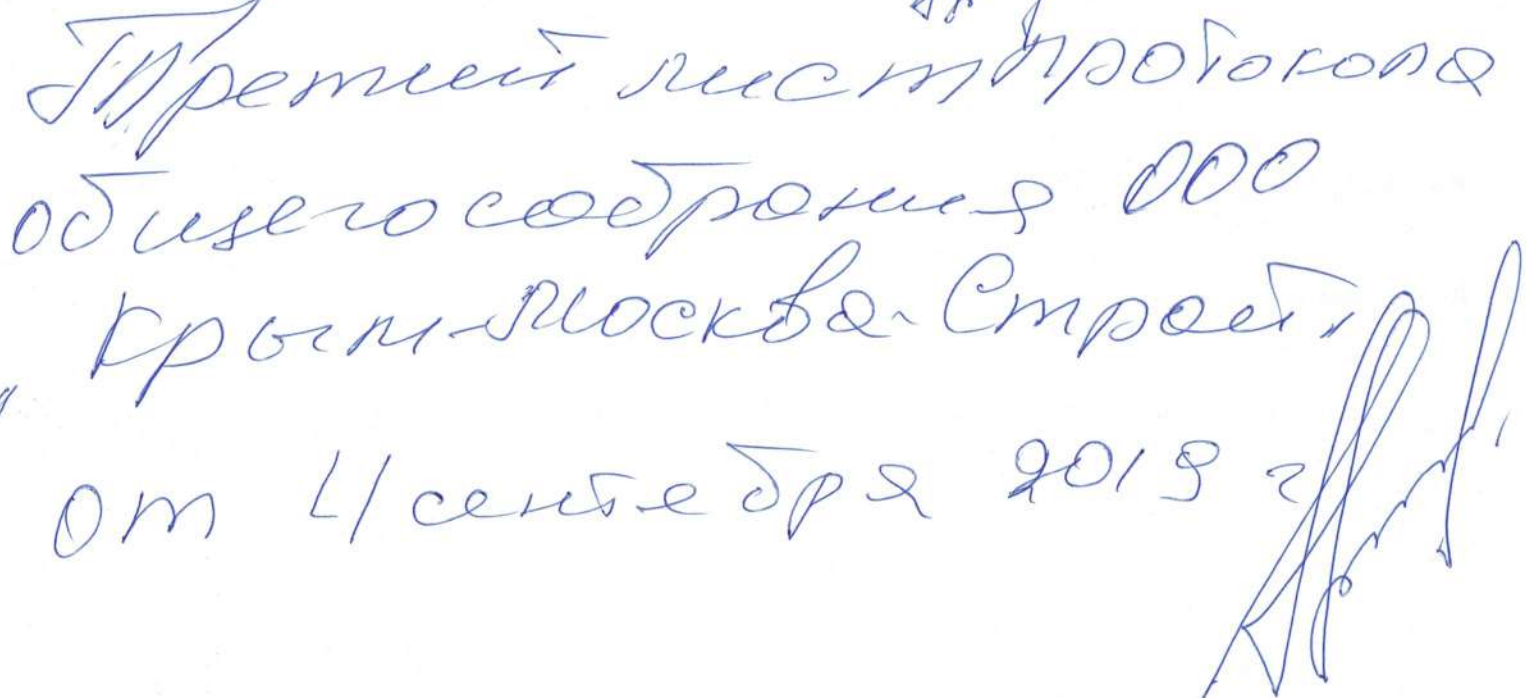 Третий лист протокола
общего собрания ООО
Крым-Москва-Строй"
от 4 сентября 2019 г